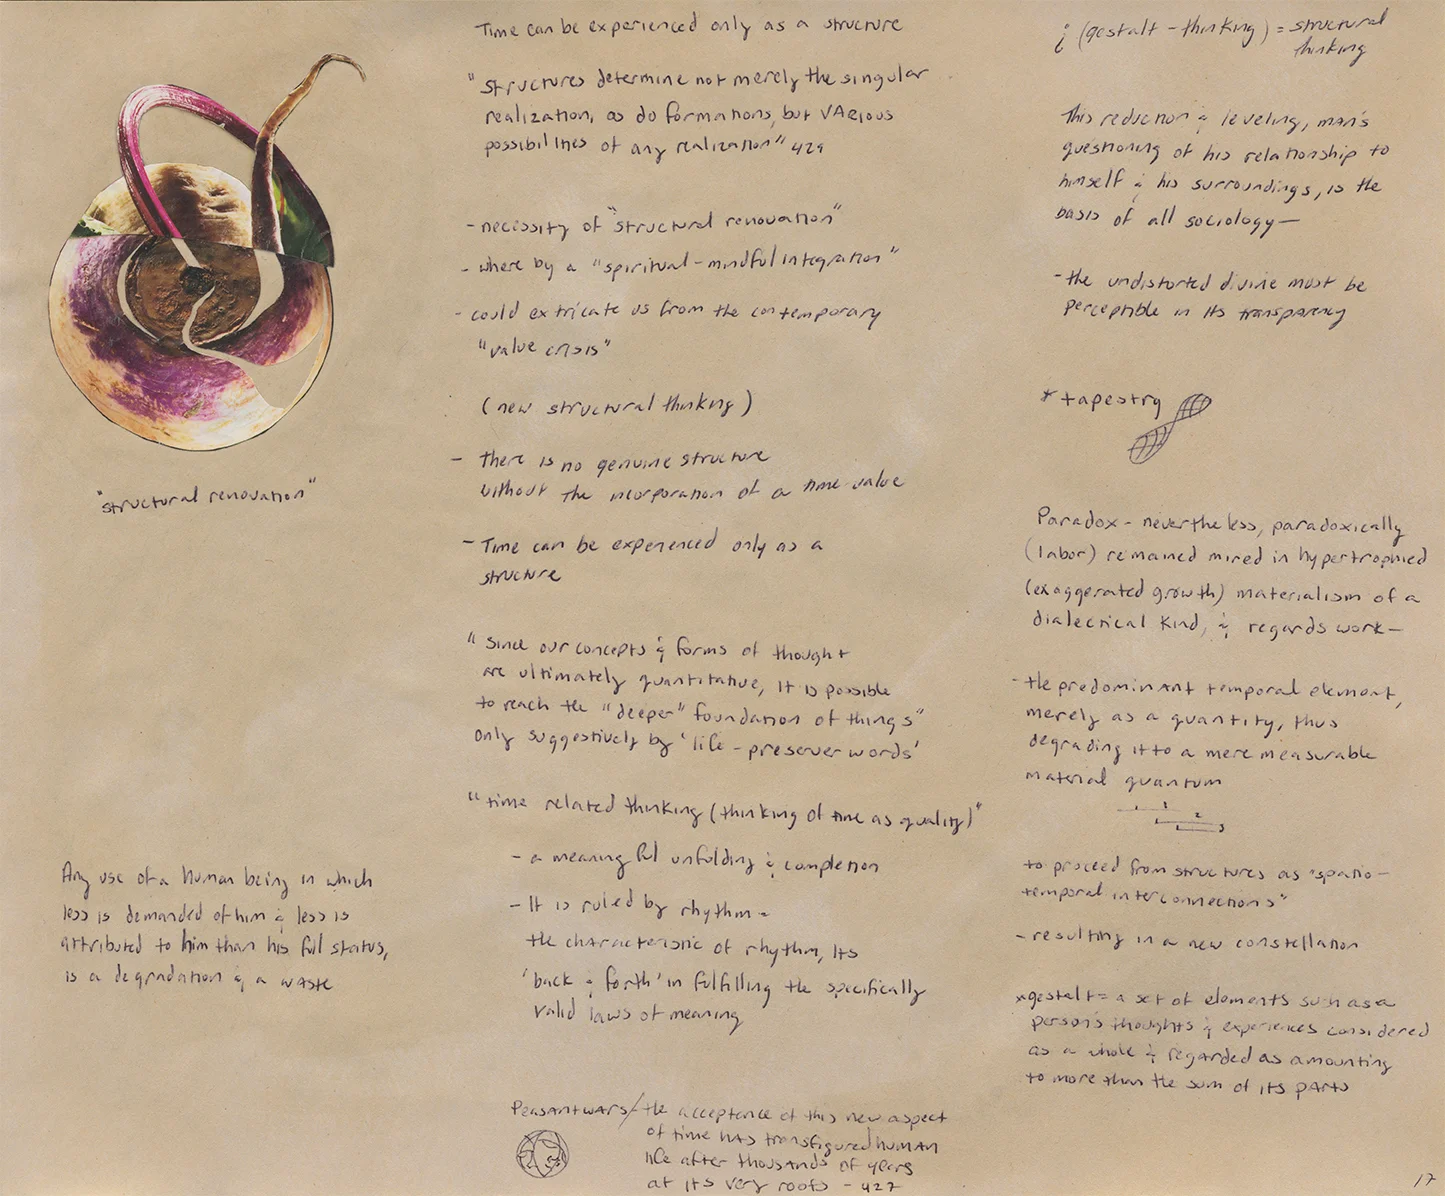 "structural renovation"
Any use of a human being in which
less is demanded of him & less is
attributed to him than his full status,
is a degradation & a waste
Time can be experienced only as a structure
"structures determine not merely the singular
realization, as do formations, but various
possibilities of any realization" 429
- necessity of "structural renovation"
- where by a "spiritual-mindful integration"
- could extricate us from the contemporary
"value crisis"
(new structural thinking)
- there is no genuine structure
without the incorporation of a time value
- Time can be experienced only as a
structure
" since our concepts & forms of thought
are ultimately quantitative, it is possible
to reach the "deeper" foundation of things"
only suggestively by 'life-preserver words'
"time related thinking (thinking of time as quality)"
- a meaningful unfolding & completion
- It is ruled by rhythm -
the characteristic of rhythm, its
'back & forth' in fulfilling the specifically
valid laws of meaning
Peasant wars / the acceptance of this new aspect
of time has transfigured human
life after thousands of years
at its very roots - 427
¿ (gestalt-thinking) = structural
thinking
This reduction & leveling, man's
questioning of his relationship to
himself & his surroundings, is the
basis of all sociology—
- the undistorted divine must be
perceptible in its transparency
* tapestry
Paradox - nevertheless, paradoxically
(labor) remained mired in hypertrophied
(exaggerated growth) materialism of a
dialectical kind, & regards work—
- the predominant temporal element,
merely as a quantity, thus
degrading it to a mere measurable
material quantum
1
2
3
to proceed from structures as "spatio-
temporal interconnections"
- resulting in a new constellation
*gestalt = a set of elements such as a
person's thoughts & experiences considered
as a whole & regarded as amounting
to more than the sum of its parts
17